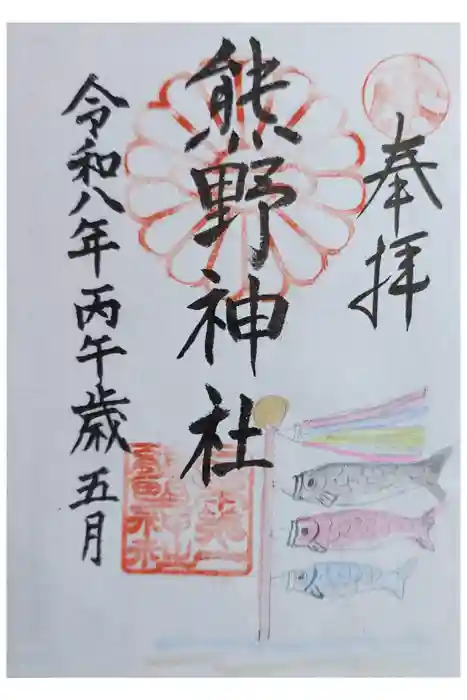 奉拝
熊野神社
令和八年丙午歳五月